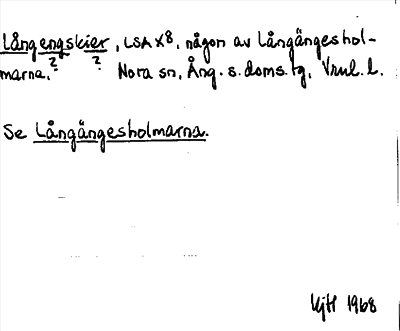 Långengskier, LSA X8, någon av Långängeshol-
? ?
marna. Nora sn, Ång. s. doms. tg, Vrul. l.
Se Långängesholmarna.
HjH 1968